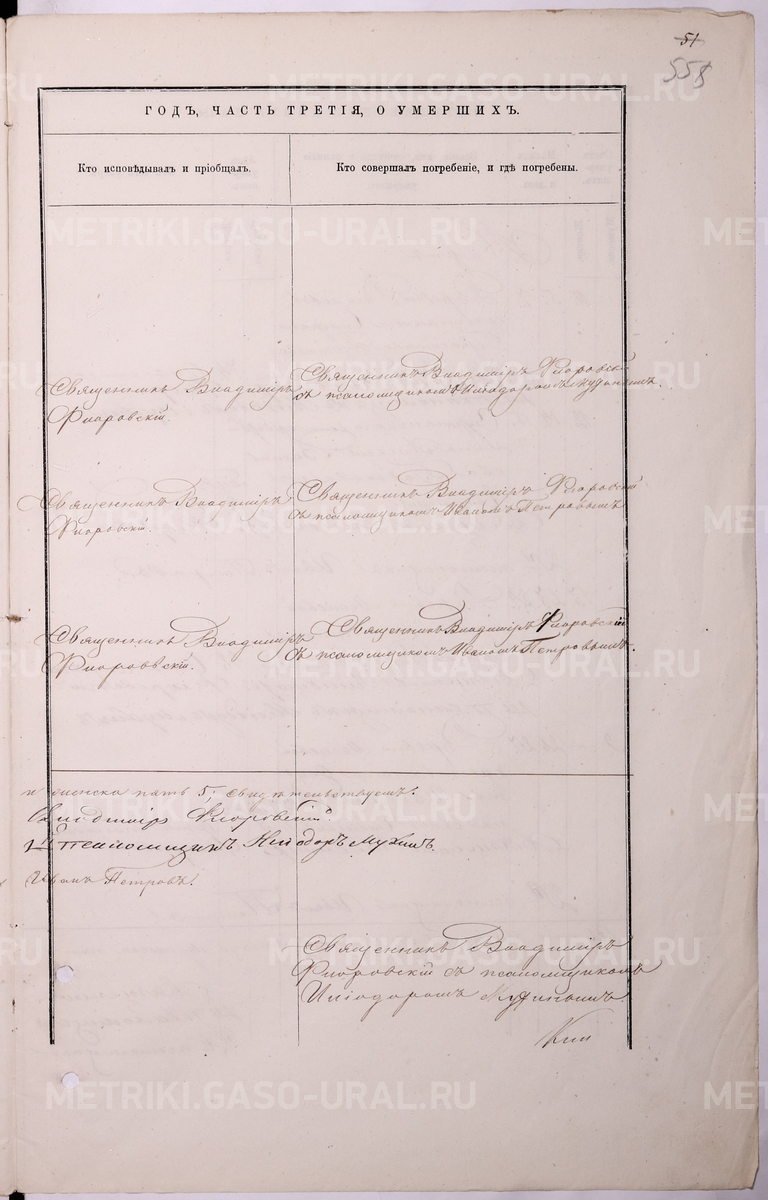 51
558
ГОДЪ, ЧАСТЬ ТРЕТІЯ, О УМЕРШИХЪ.
Кто исповѣдывалъ и пріобщалъ.
Кто совершалъ погребеніе, и гдѣ погребены.
Священникъ Владиміръ
Флоровскій.
Священникъ Владиміръ Флоровскій
съ псаломщикомъ Иліодоромъ
Священникъ Владиміръ
Флоровскій.
Священникъ Владиміръ Флоровскій
съ псаломщикомъ Иваномъ Петровымъ
Священникъ Владиміръ
Флоровскій.
Священникъ Владиміръ Флоровскій
съ псаломщикомъ Иваномъ Петровымъ.
пола пять 5, свидѣтельствуемъ:
Владиміръ Флоровскій.
псаломщикъ
Иванъ Петровъ.
Священникъ Владиміръ
Флоровскій съ псаломщикомъ
Иліодоромъ
METRIKI.GASO-URAL.RU